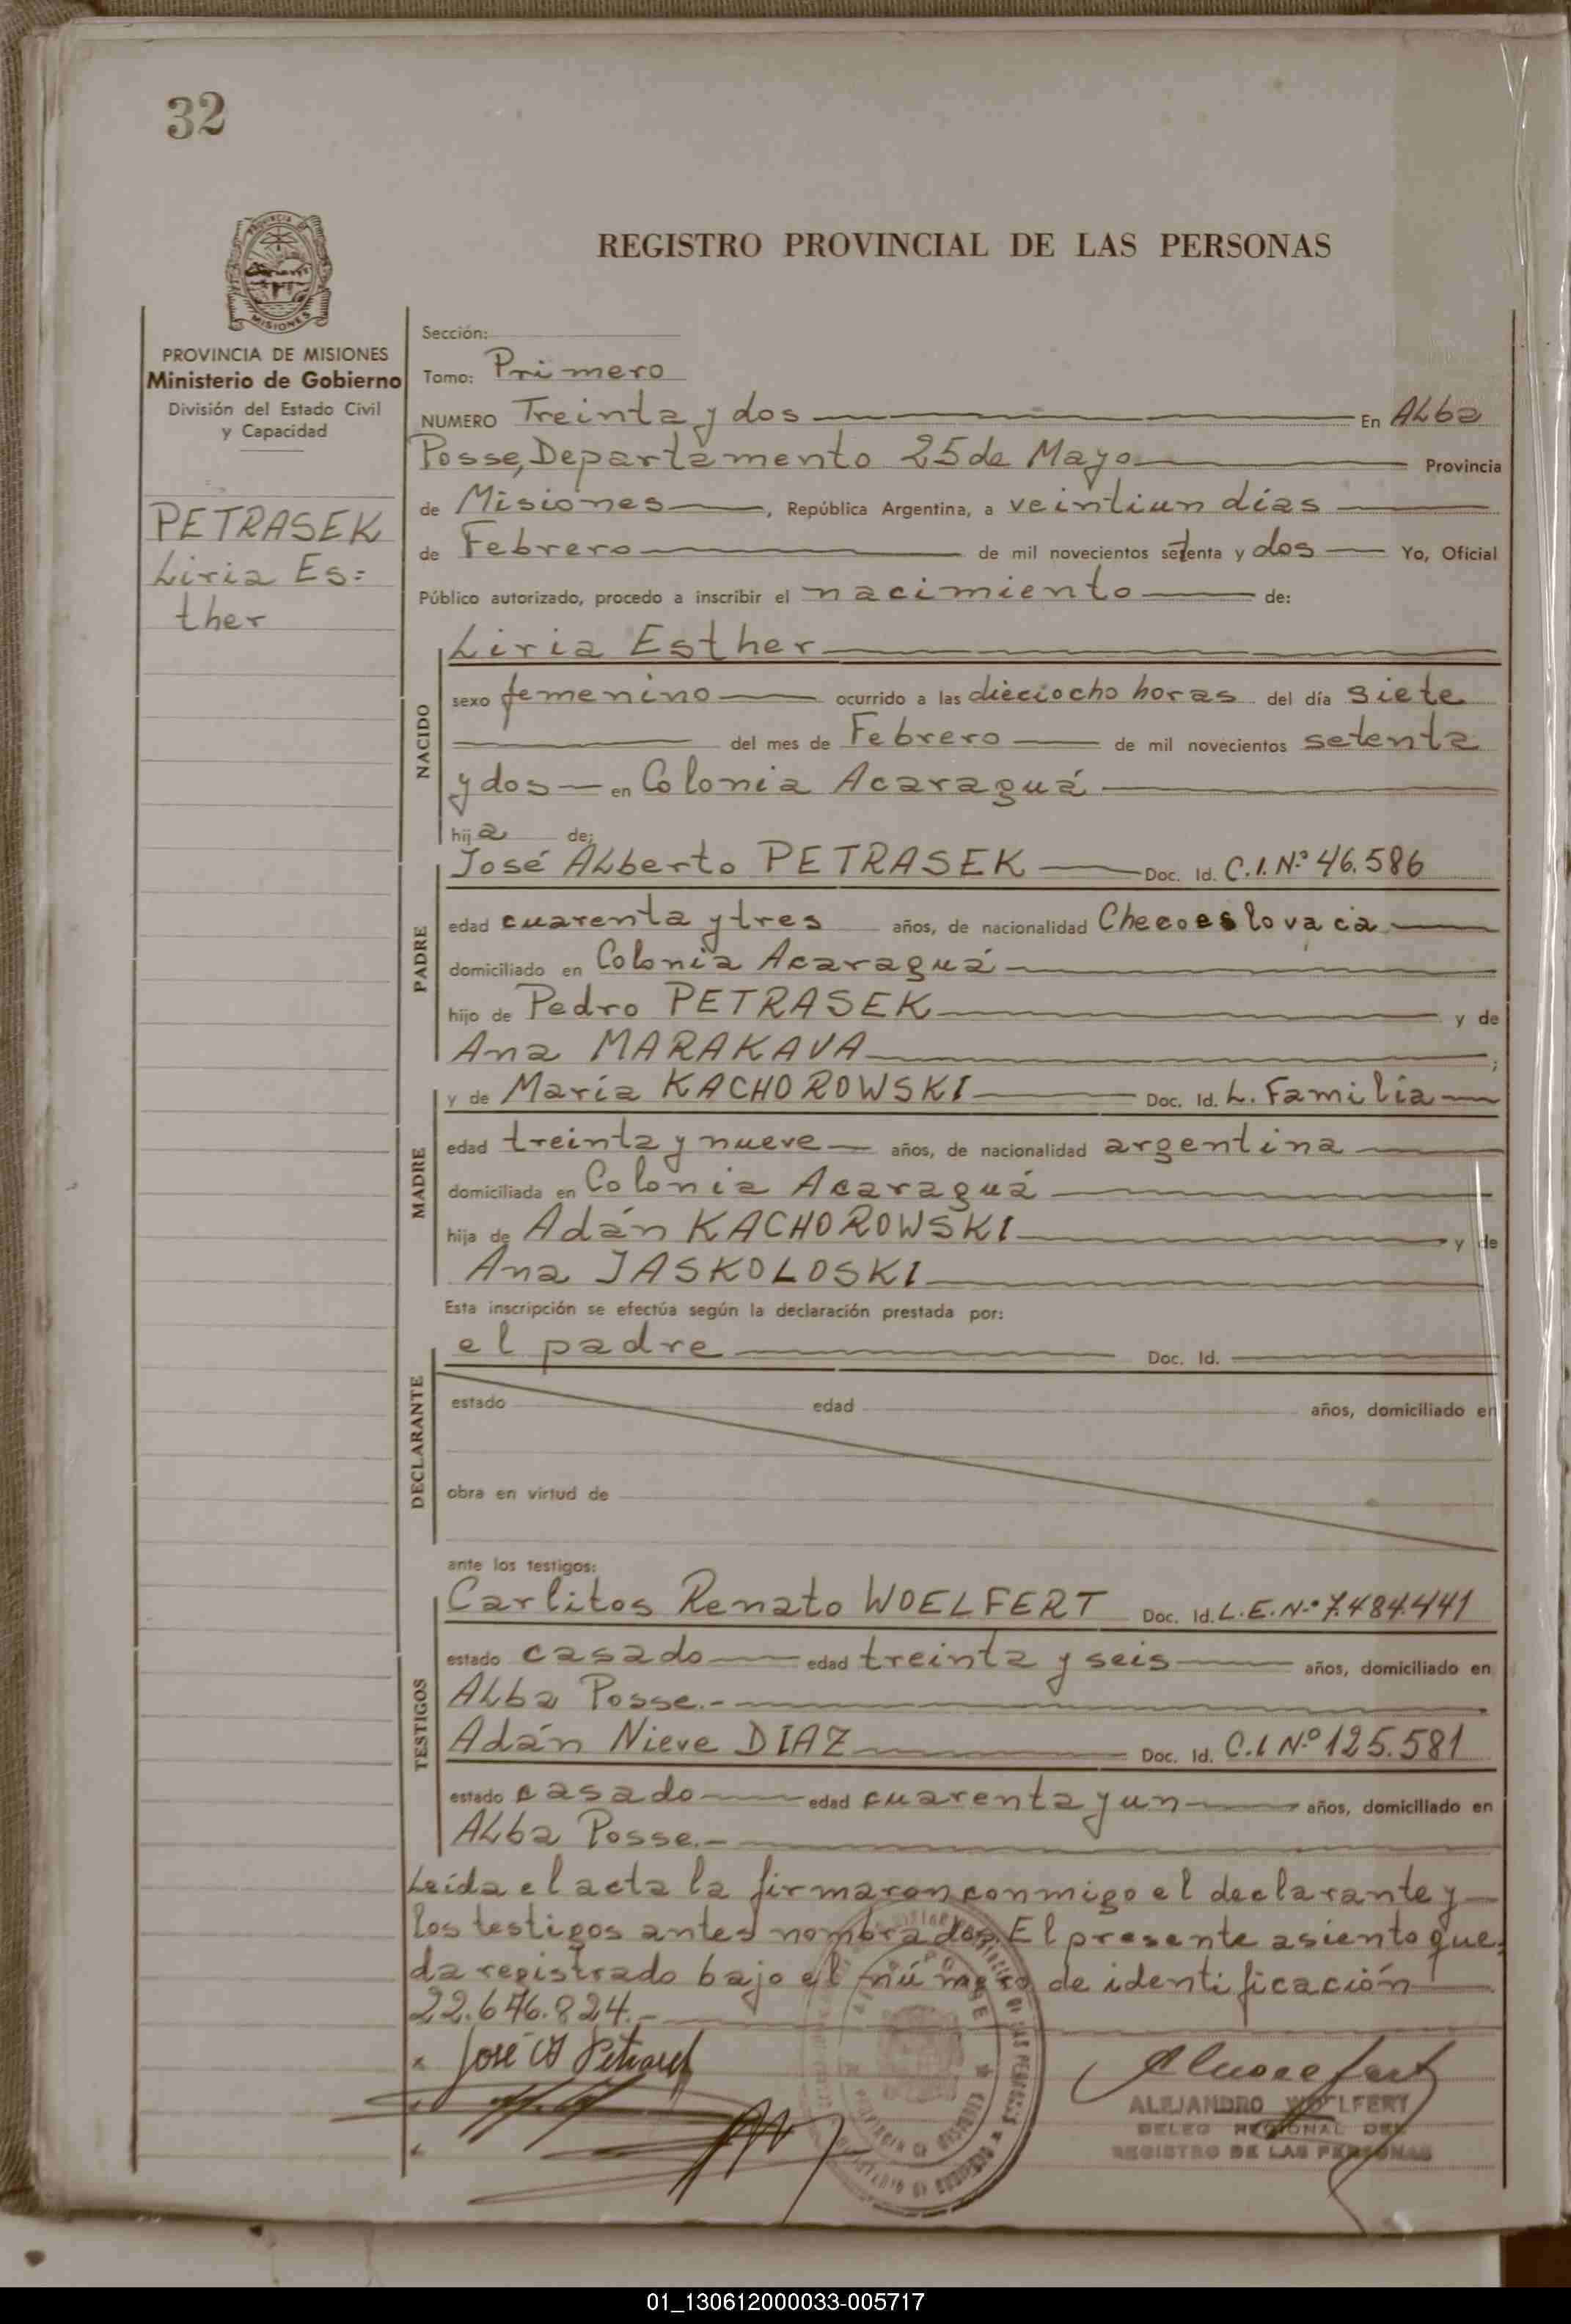 32
PROVINCIA DE MISIONES
REGISTRO PROVINCIAL DE LAS PERSONAS
PROVINCIA DE MISIONES
Ministerio de Gobierno
División del Estado Civil
y Capacidad
PETRASEK
Liria Es=
ther
Sección:
Tomo: Primero
NUMERO Treinta y dos En Alba
Posse, Departamento 25 de Mayo Provincia
de Misiones, República Argentina, a veintiun días
de Febrero de mil novecientos setenta y dos Yo, Oficial
Público autorizado, procedo a inscribir el nacimiento de:
NACIDO
Liria Esther
sexo femenino ocurrido a las dieciocho horas del día siete
del mes de Febrero de mil novecientos setenta
y dos en Colonia Acaraguá
hija de:
PADRE
José Alberto PETRASEK Doc. Id. C.I. Nº 46.586
edad cuarenta y tres años, de nacionalidad Checoeslovaca
domiciliado en Colonia Acaraguá
hijo de Pedro PETRASEK y de
Ana MARAKAVA ;
MADRE
y de María KACHOROWSKI Doc. Id. L. Familia
edad treinta y nueve años, de nacionalidad argentina
domiciliada en Colonia Acaraguá
hija de Adán KACHOROWSKI y de
Ana JASKOLOSKI
Esta inscripción se efectúa según la declaración prestada por:
DECLARANTE
el padre Doc. Id.
estado edad años, domiciliado en
obra en virtud de
ante los testigos:
TESTIGOS
Carlitos Renato WOELFERT Doc. Id. L.E. Nº 7.484.441
estado casado edad treinta y seis años, domiciliado en
Alba Posse.-
Adán Nieve DIAZ Doc. Id. C.I Nº 125.581
estado casado edad cuarenta y un años, domiciliado en
Alba Posse.-
Leída el acta la firmaron conmigo el declarante y
los testigos antes nombrados. El presente asiento que=
da registrado bajo el número de identificación
22.676.824.-
José A Petrasek
ALEJANDRO WOLFERT
DELEG REGIONAL DEL
REGISTRO DE LAS PERSONAS
01_130612000033-005717